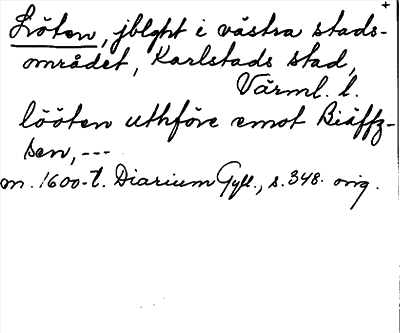 Lööten, jblght i västra stads-
området, Karlstads stad,
Värml. l.
lööten uthföre emot Biäffz-
sen, ---
m. 1600-t. Diarium Gyll., s. 348. orig.